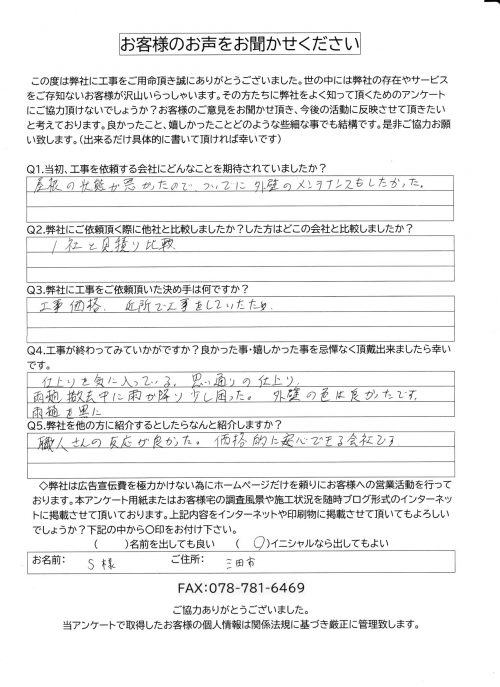 お客様のお声をお聞かせください
この度は弊社に工事をご用命頂き誠にありがとうございました。世の中には弊社の存在やサービス
をご存知ないお客様が沢山いらっしゃいます。その方たちに弊社をよく知って頂くためのアンケート
にご協力頂けないでしょうか？お客様のご意見をお聞かせ頂き、今後の活動に反映させて頂きたい
と考えております。良かったこと、嬉しかったことどのような些細な事でも結構です。是非ご協力お願
い致します。（出来るだけ具体的に書いて頂ければ幸いです）
Q1.当初、工事を依頼する会社にどんなことを期待されていましたか？
屋根の状態が悪かったので、ついでに外壁のメンテナンスもしたかった。
Q2.弊社にご依頼頂く際に他社と比較しましたか？した方はどこの会社と比較しましたか？
1社と見積り比較
Q3.弊社に工事をご依頼頂いた決め手は何ですか？
工事価格、近所で工事をしていたため、
Q4.工事が終わってみていかがですか？良かった事・嬉しかった事を忌憚なく頂戴出来ましたら幸い
です。
仕上りを気に入っている。思い通りの仕上り、
雨樋撤去中に雨が降り少し困った。外壁の色は良かったです。
雨樋を黒に
Q5.弊社を他の方に紹介するとしたらなんと紹介しますか？
職人さんの反応が良かった。価格的に安心できる会社です
◇弊社は広告宣伝費を極力かけない為にホームページだけを頼りにお客様への営業活動を行って
おります。本アンケート用紙またはお客様宅の調査風景や施工状況を随時ブログ形式のインターネッ
トに掲載させて頂いております。上記内容をインターネットや印刷物に掲載させて頂いてもよろしい
でしょうか？下記の中から〇印をお付け下さい。
（　）名前を出しても良い　（〇）イニシャルなら出してもよい
お名前：　S様　ご住所：　三田市
FAX：078-781-6469
ご協力ありがとうございました。
当アンケートで取得したお客様の個人情報は関係法規に基づき厳正に管理致します。